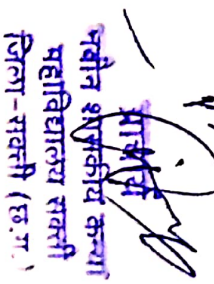 प्राचार्य
नवीन शासकीय कन्या
महाविद्यालय सक्ती
जिला-सक्ती (छ.ग.)